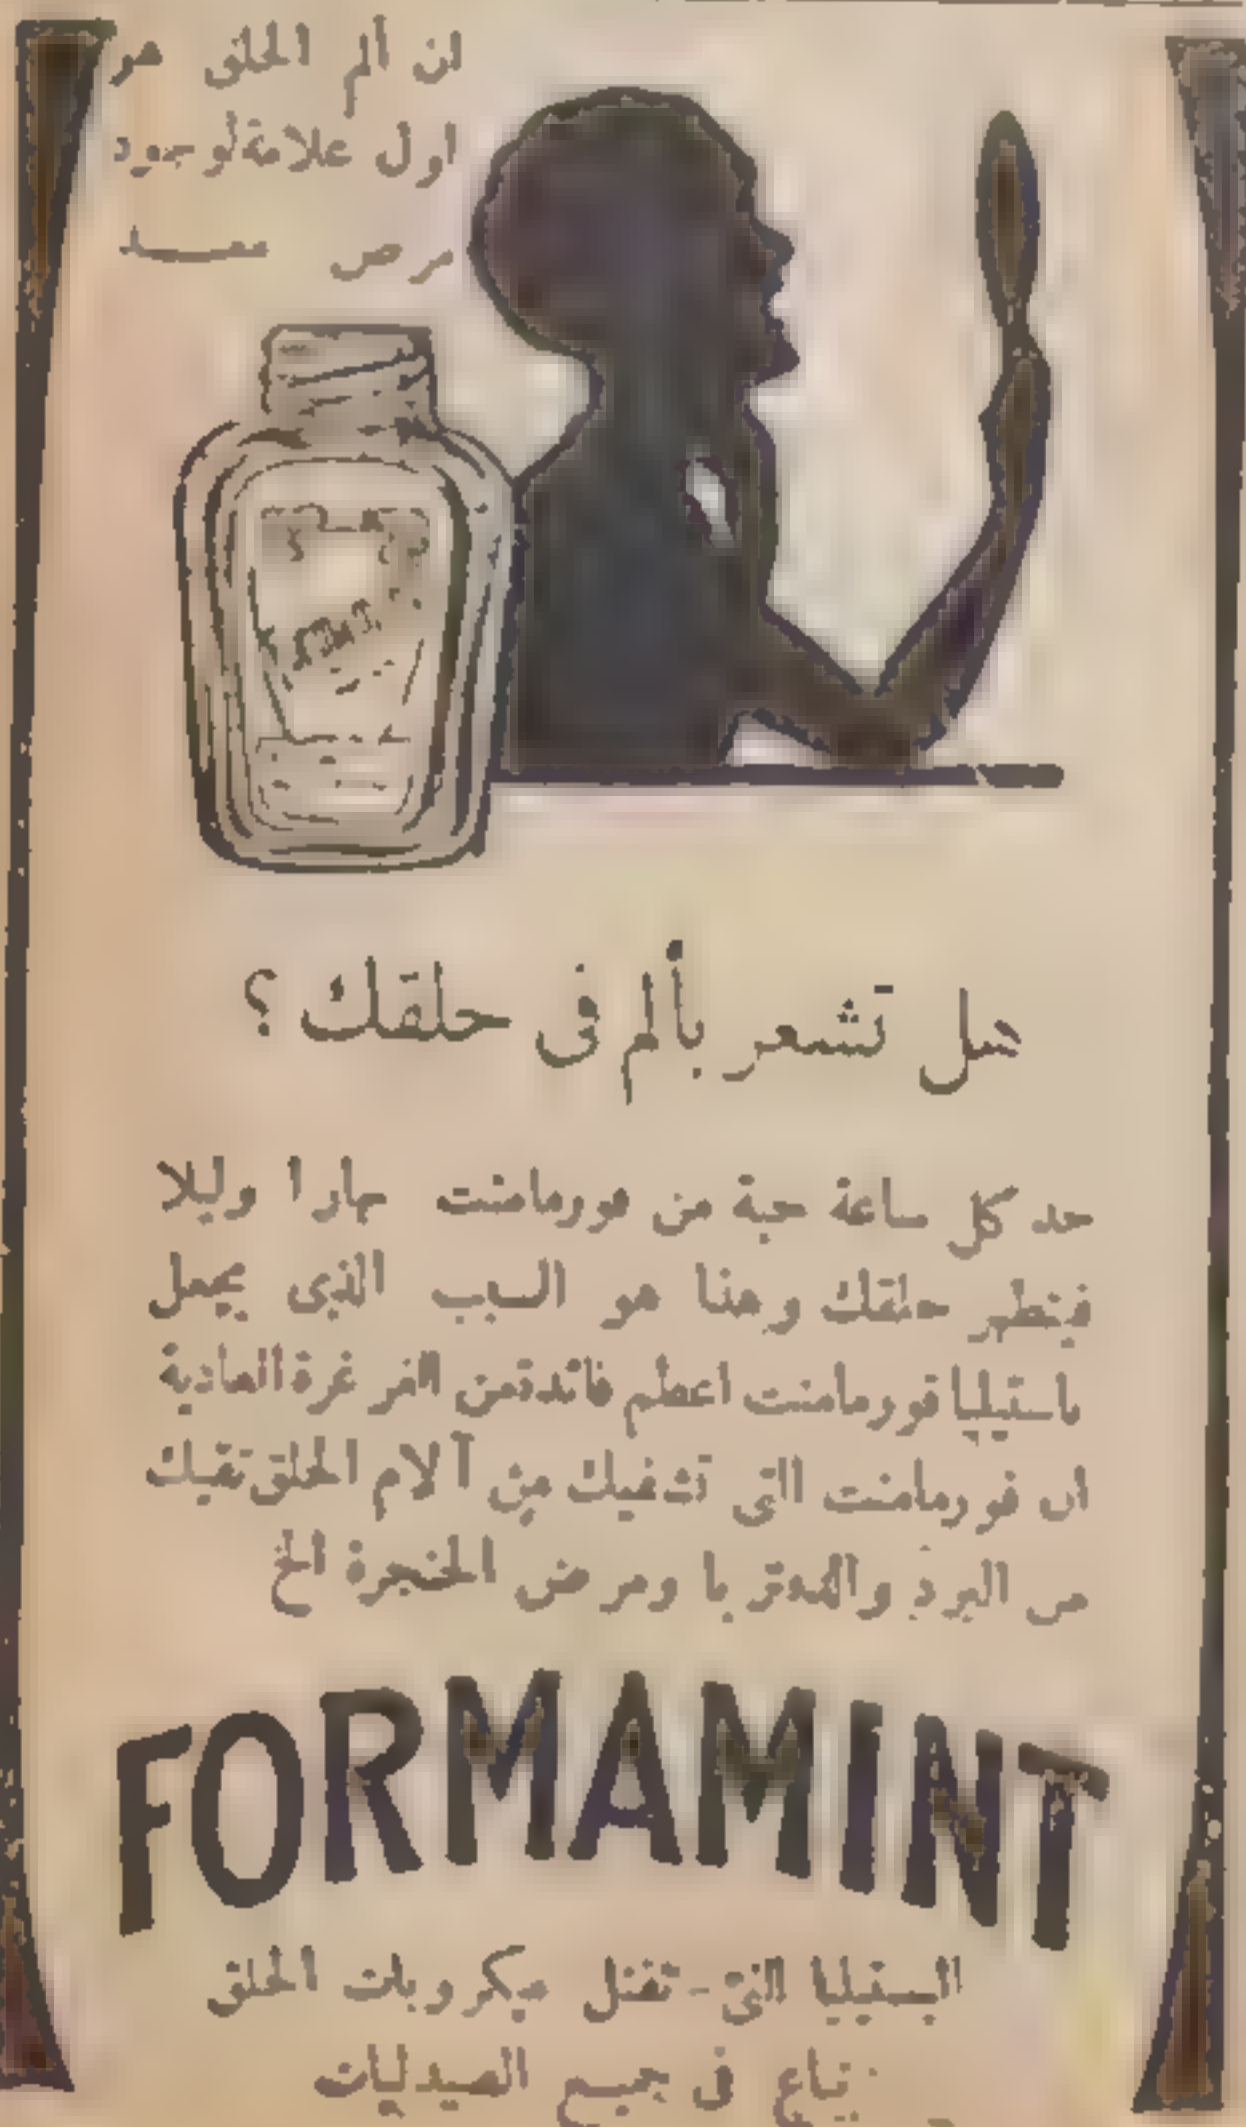 ان ألم الحلق هو
اول علامة لوجود
مرض معد
هل تشعر بألم فى حلقك ؟
خذ كل ساعة حبة من فورمامنت نهارا وليلا
فيتطهر حلقك وهذا هو السبب الذى يجعل
باستيليا فورمامنت اعظم فائدة من الغرغرة العادية
ان فورمامنت التى تشفيك من آلام الحلق تقيك
من البرد والدفتريا ومرض الحنجرة الخ
FORMAMINT
البستيليا التى - تقتل ميكروبات الحلق
تباع فى جميع الصيدليات